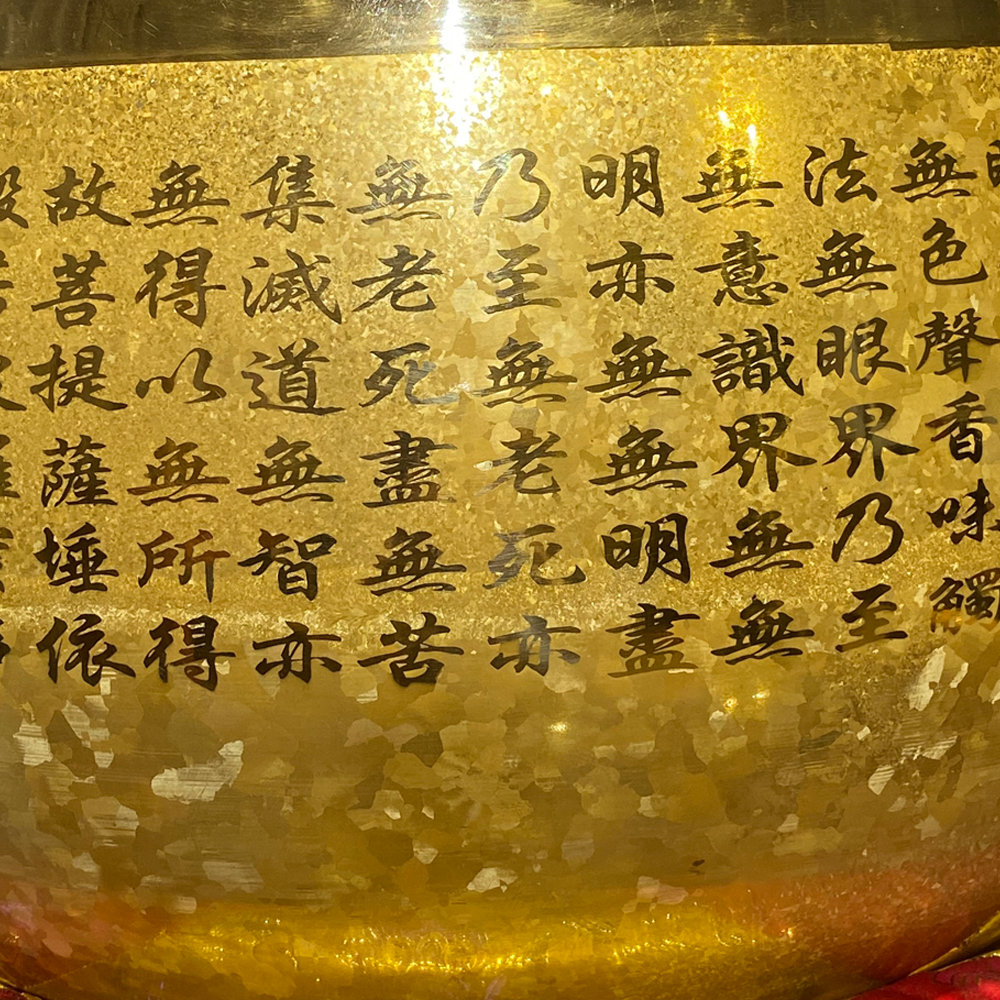 無色聲香味觸
法無眼界乃至
無意識界無無
明亦無無明盡
乃至無老死亦
無老死盡無苦
集滅道無智亦
無得以無所得
故菩提薩埵依